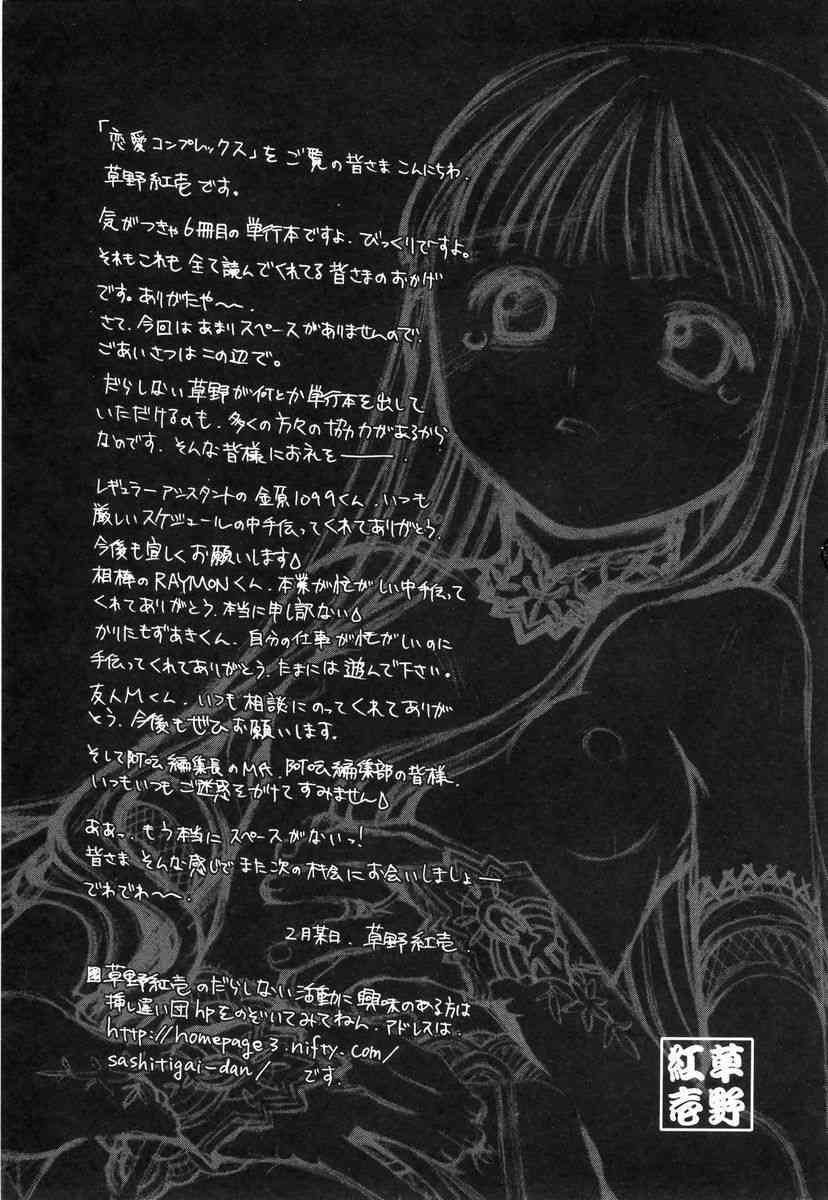 「恋愛コンプレックス」を ご覧の皆さま こんにちわ.
草野紅壱です。
気がつきゃ6冊目の単行本ですよ. びっくりですよ。
それもこれも 全て読んでくれてる 皆さまのおかげ
です。ありがたや〜〜.
さて、今回は あまり スペースが ありませんので、
ごあいさつは この辺で。
だらしない 草野が 何とか 単行本を出して
いただけるのも、多くの方々の 協力があるから
なのです. そんな 皆様に お礼を———.
レギュラーアシスタントの 金原1099くん. いつも
厳しいスケジュールの中 手伝ってくれてありがとう.
今後も 宜しく お願いします△
相棒の RAYMONくん. 本業が忙がしい中 手伝って
くれてありがとう. 本当に 申し訳ない△
かりたもずあきくん. 自分の仕事が 忙がしいのに
手伝ってくれてありがとう. たまには 遊んで下さい。
友人Mくん. いつも 相談に のってくれて ありが
とう. 今後も ぜひ お願いします。
そして 阿吽編集長の M氏. 阿吽編集部の皆様.
いつもいつも ご迷惑をがけて すみません△
ああっ. もう本当に スペースが ないっ!
皆さま そんな感じで また次の 機会に お会いしましょー
でわでわ〜〜.
2月某日. 草野紅壱.
草野紅壱の だらしない 活動に 興味のある方は
挿し違い団hpを のぞいてみてねん. アドレスは.
http://homepage3.nifty.com/
sashitigai-dan/ です.
草野
紅壱